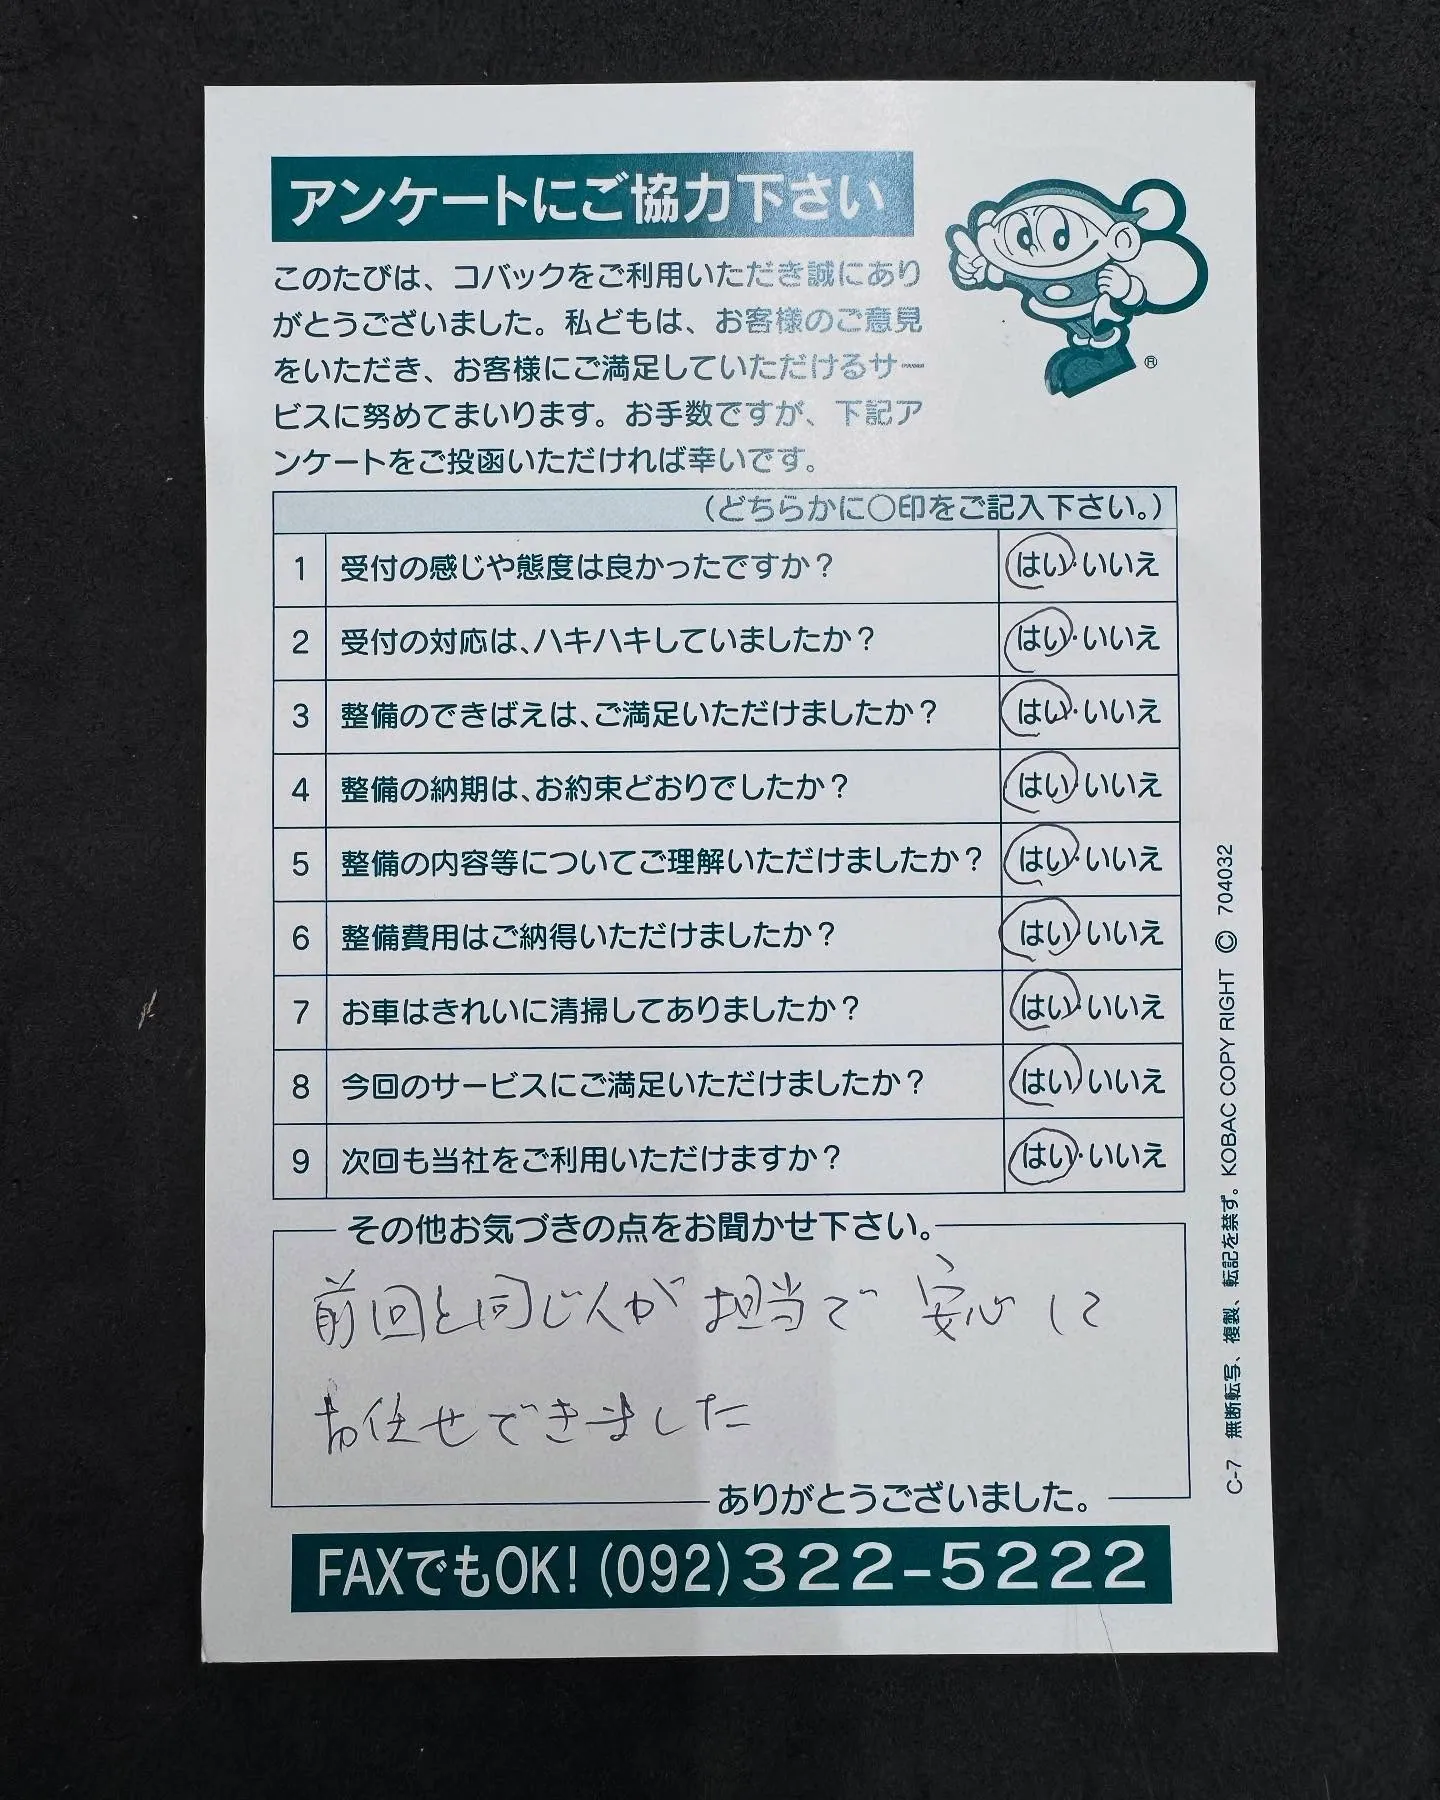 アンケートにご協力下さい
このたびは、コバックをご利用いただき誠にあり
がとうございました。私どもは、お客様のご意見
をいただき、お客様にご満足していただけるサー
ビスに努めてまいります。お手数ですが、下記ア
ンケートをご投函いただければ幸いです。
®
(どちらかに〇印をご記入下さい。)
1 受付の感じや態度は良かったですか？ はい・いいえ
2 受付の対応は、ハキハキしていましたか？ はい・いいえ
3 整備のできばえは、ご満足いただけましたか？ はい・いいえ
4 整備の納期は、お約束どおりでしたか？ はい・いいえ
5 整備の内容等についてご理解いただけましたか？ はい・いいえ
6 整備費用はご納得いただけましたか？ はい・いいえ
7 お車はきれいに清掃してありましたか？ はい・いいえ
8 今回のサービスにご満足いただけましたか？ はい・いいえ
9 次回も当社をご利用いただけますか？ はい・いいえ
その他お気づきの点をお聞かせ下さい。
前回と同じ人が担当で 安心して
お任せできました
ありがとうございました。
FAXでもOK!(092)322-5222
C-7 無断転写、複製、転記を禁ず。KOBAC COPY RIGHT © 704032